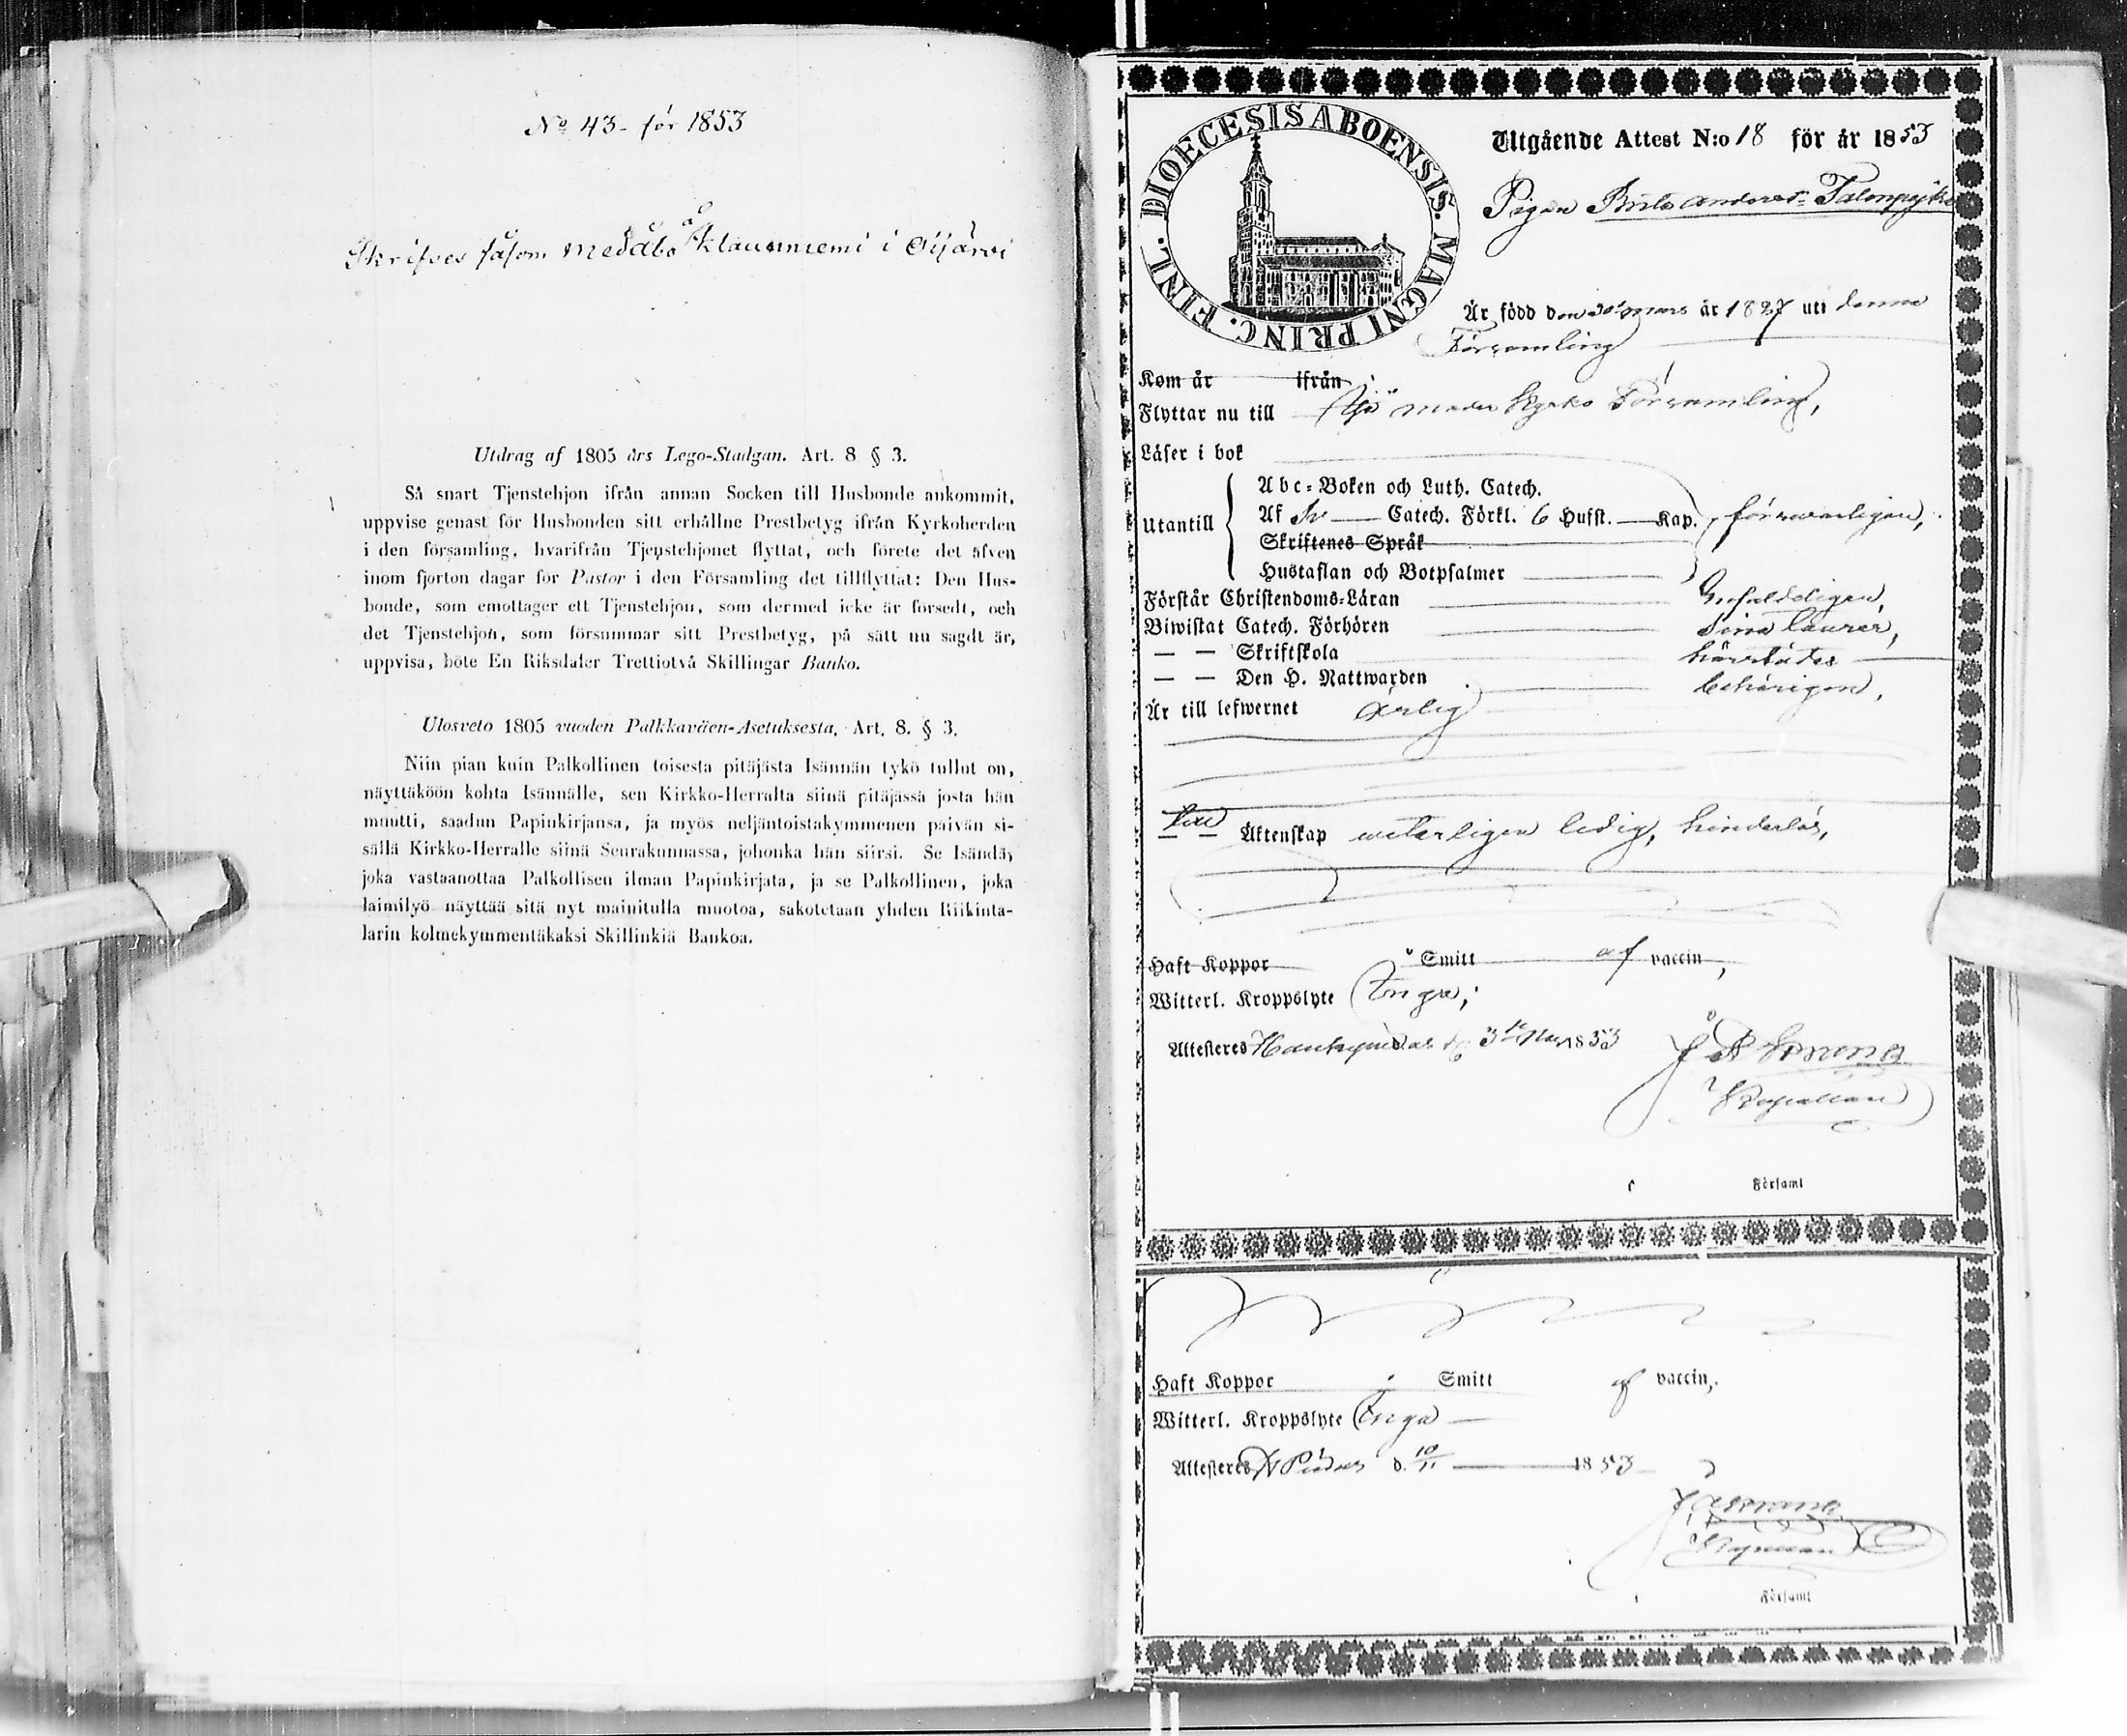 No 43 för 1853
Skrifves såsom medåbo å Klaunniemi i Oijärvi
Utdrag af 1805 års Lego-Stadgan. Art. 8 § 3.
Så snart Tjenstehjon ifrån annan Socken till Husbonde ankommit,
uppvise genast för Husbonden sitt erhållne Prestbetyg ifrån Kyrkoherden
i den församling, hvarifrån Tjenstehjonet flyttat, och förete det äfven
inom fjorton dagar för Pastor i den Församling det tillflyttat: Den Hus-
bonde, som emottager ett Tjenstehjon, som dermed icke är försedt, och
det Tjenstehjon, som försummar sitt Prestbetyg, på sätt nu sagdt är,
uppvisa, böte En Riksdaler Trettiotvå Skillingar Banko.
Ulosveto 1805 vuoden Palkkaväen-Asetuksesta, Art. 8. § 3.
Niin pian kuin Palkollinen toisesta pitäjästa Isännän tykö tullut on,
näyttäköön kohta Isännälle, sen Kirkko-Herralta siinä pitäjässä josta hän
muutti, saadun Papinkirjansa, ja myös neljäntoistakymmenen päivän si-
sällä Kirkko-Herralle siinä Seurakunnassa, johonka hän siirsi. Se Isändä,
joka vastaanottaa Palkollisen ilman Papinkirjata, ja se Palkollinen, joka
laimilyö näyttää sitä nyt mainitulla muotoa, sakotetaan yhden Riikinta-
larin kolmekymmentäkaksi Skillinkiä Bankoa.
FINL. DIOECESIS ABOENSIS. MAGNI PRINC.
Utgående Attest N:o 18 för år 1853
Pigan Brita Andersd:r
Är född den 30 mars år 1827 uti denna
Församling
Kom år ifrån
Flyttar nu till Ijo moder kyrko Församling,
Läser i bok
Abc-Boken och Luth. Catech.
Utantill Af Sv Catech. Förkl. 6 Hufst. Kap. försvarligen,
Skriftenes Språk
Hustaflan och Botpsalmer
Förstår Christendoms-Läran Enfaldeligen,
Biwistat Catech. Förhören sina laurer,
— — Skriftskola härstädes
— — Den H. Nattwarden behörigen,
Är till lefwernet ärlig
till Äktenskap veterligen ledig, hinderlös,
Haft Koppor Smitt af vaccin,
Witterl. Kroppslyte Inga,
Attesteres Haukipudas d. 3 1853
Kapellan
Församl
Haft Koppor Smitt af vaccin,
Witterl. Kroppslyte Inga
Attesteres d. 10/11 1853
Kapellan
Församl